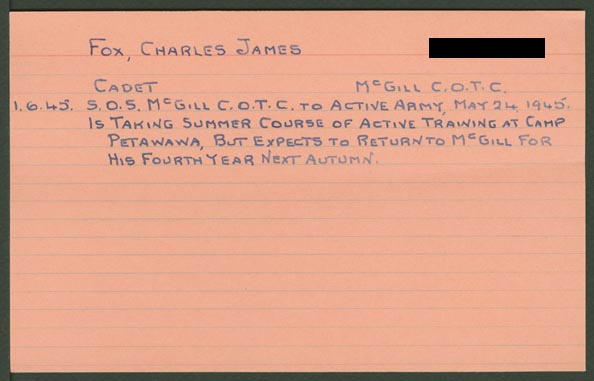 Fox, Charles James
Cadet McGill C.O.T.C.
1.6.45. S.O.S. McGill C.O.T.C. to Active Army, May 24, 1945.
Is Taking Summer Course of Active Training at Camp
Petawawa, But Expects to Return to McGill For
His Fourth Year Next Autumn.